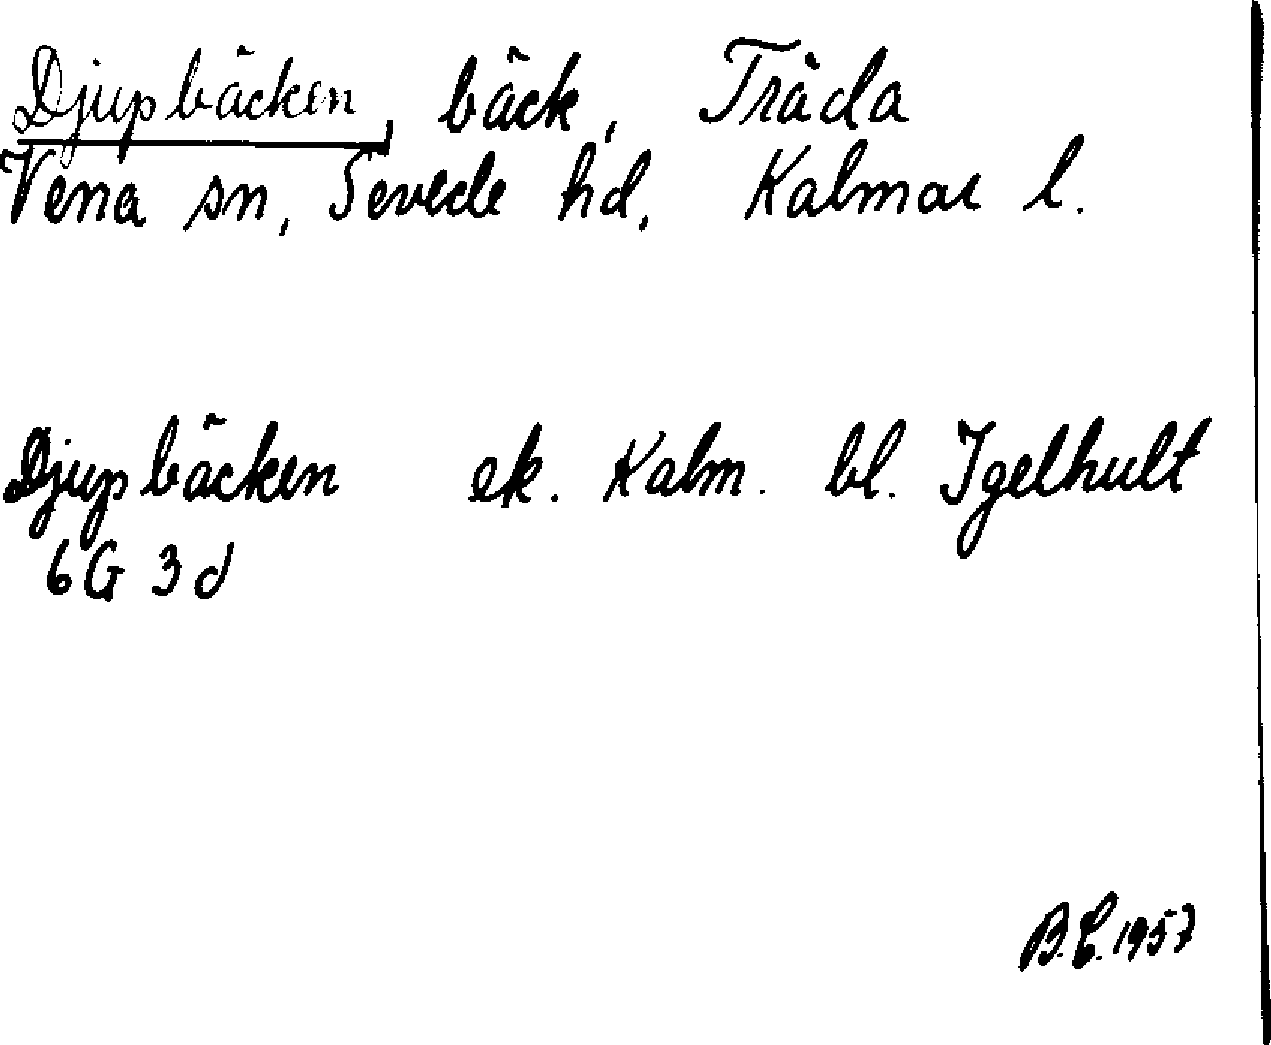 Djupbäcken, bäck, Tråda
Vena sn, Sevede hd, Kalmar l.
Djupbäcken ek. Kalm. bl. Igelhult
6G 3d
B.C. 1957